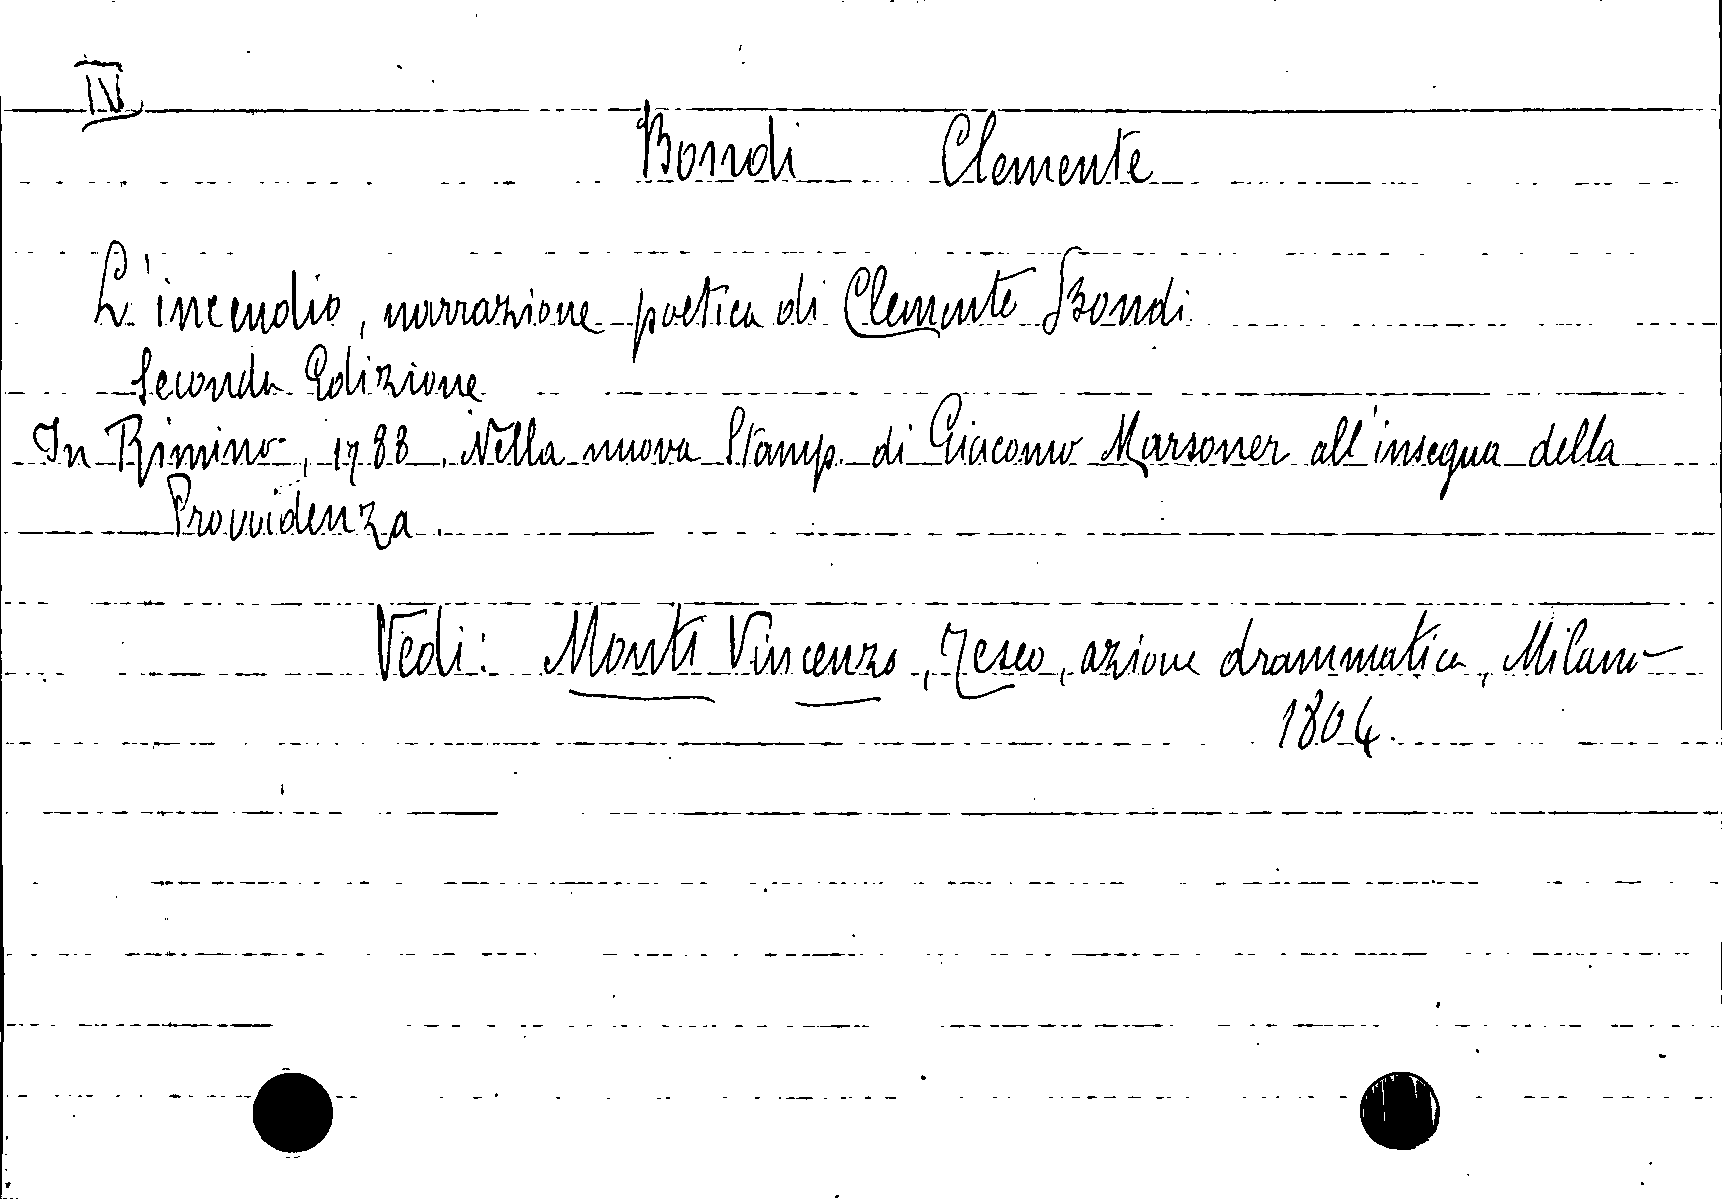 IV
Bondi Clemente
L'incendio, narrazione poetica di Clemente Bondi
Seconda Edizione
In Rimino, 1788. Nella nuova Stamp. di Giacomo Marsoner all'insegna della
Provvidenza.
Vedi: Monti Vincenzo, Teseo, azione drammatica, Milano
1804.